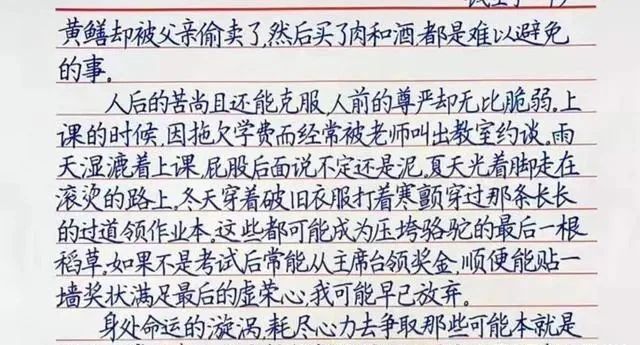 黄鳝却被父亲偷卖了,然后买了肉和酒,都是难以避免
的事。
人后的苦尚且还能克服,人前的尊严却无比脆弱。上
课的时候,因拖欠学费而经常被老师叫出教室约谈。雨
天湿漉着上课,屁股后面说不定还是泥。夏天光着脚走在
滚烫的路上。冬天穿着破旧衣服打着寒颤穿过那条长长
的过道领作业本。这些都可能成为压垮骆驼的最后一根
稻草。如果不是考试后常能从主席台领奖金,顺便能贴一
墙奖状满足最后的虚荣心,我可能早已放弃。
身处命运的漩涡,耗尽心力去争取那些可能本就是